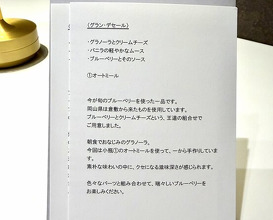 〈グラン・デセール〉
・グラノーラとクリームチーズ
・バニラの軽やかなムース
・ブルーベリーとそのソース
①オートミール
今が旬のブルーベリーを使った一品です。
岡山県は倉敷から来たものを使用しています。
ブルーベリーとクリームチーズという、王道の組合せで
ご用意しました。
朝食でおなじみのグラノーラ。
今回は小瓶①のオートミールを使って、一から手作りしていま
す。
素朴な味わいの中に、クセになる滋味深さが感じられます。
色々なパーツと組み合わせて、瑞々しいブルーベリーを
お楽しみください。